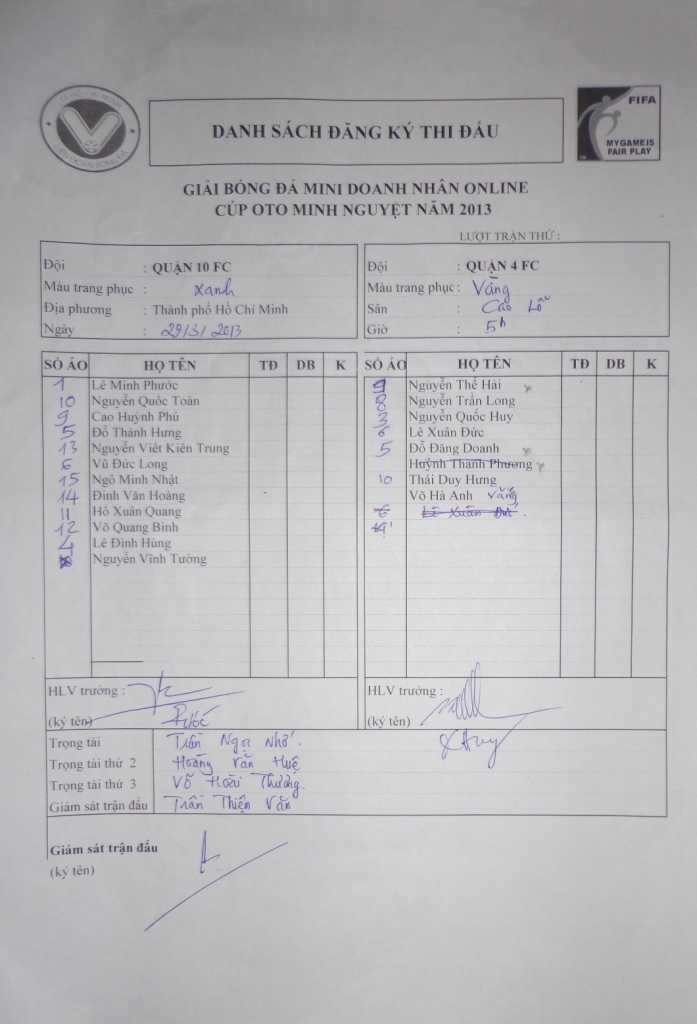 TP HỒ CHÍ MINH
LIÊN ĐOÀN BÓNG ĐÁ
DANH SÁCH ĐĂNG KÝ THI ĐẤU
FIFA
MY GAME IS
FAIR PLAY
GIẢI BÓNG ĐÁ MINI DOANH NHÂN ONLINE
CÚP OTO MINH NGUYỆT NĂM 2013
LƯỢT TRẬN THỨ :
Đội : QUẬN 10 FC
Màu trang phục : xanh
Địa phương : Thành phố Hồ Chí Minh
Ngày : 29/5/2013
Đội : QUẬN 4 FC
Màu trang phục : Vàng
Sân : Cao Lỗ
Giờ : 5h
SỐ ÁO HỌ TÊN TĐ DB K
1 Lê Minh Phước
10 Nguyễn Quốc Toàn
9 Cao Huỳnh Phú
5 Đỗ Thành Hưng
13 Nguyễn Viết Kiên Trung
6 Vũ Đức Long
15 Ngô Minh Nhật
14 Đinh Văn Hoàng
11 Hồ Xuân Quang
12 Võ Quang Bình
4 Lê Đình Hùng
8 Nguyễn Vĩnh Tường
SỐ ÁO HỌ TÊN TĐ DB K
9 Nguyễn Thế Hải
8 Nguyễn Trần Long
3 Nguyễn Quốc Huy
6 Lê Xuân Đức
5 Đỗ Đăng Doanh
Huỳnh Thanh Phương
10 Thái Duy Hưng
Võ Hà Anh vắng
6 Lê Xuân Đức
HLV trưởng :
(ký tên)
HLV trưởng :
(ký tên)
Trọng tài Trần Ngọc Nhớ.
Trọng tài thứ 2 Hoàng Văn Huệ
Trọng tài thứ 3 Võ Hoài Thương.
Giám sát trận đấu Trần Thiện Văn
Giám sát trận đấu
(ký tên)